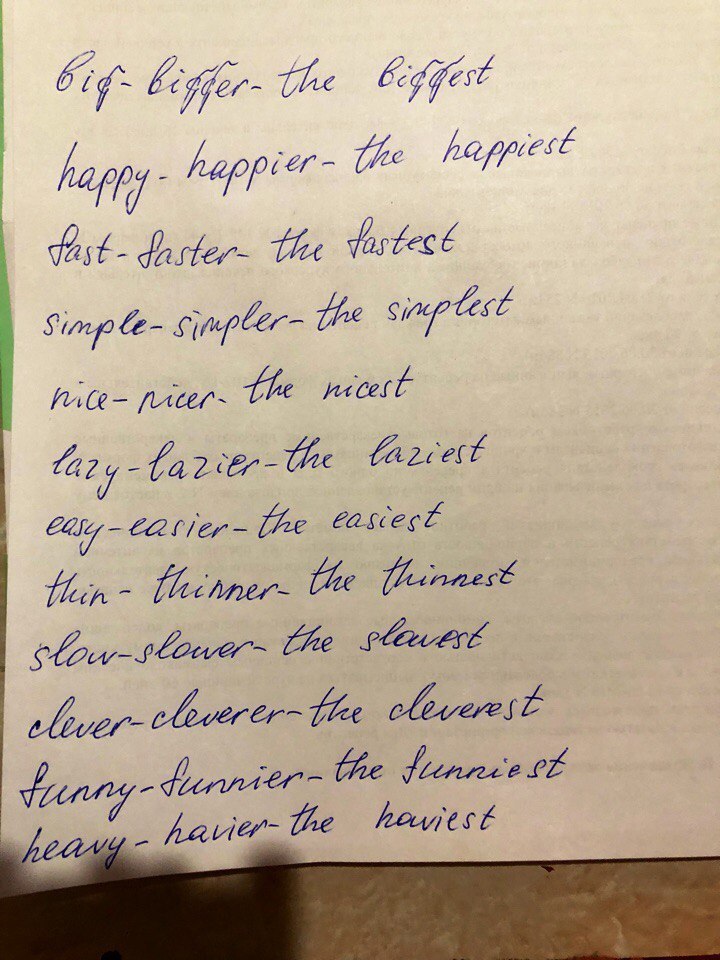 big - bigger - the biggest
happy - happier - the happiest
fast - faster - the fastest
simple - simpler - the simplest
nice - nicer - the nicest
lazy - lazier - the laziest
easy - easier - the easiest
thin - thinner - the thinnest
slow - slower - the slowest
clever - cleverer - the cleverest
funny - funnier - the funniest
heavy - havier - the haviest